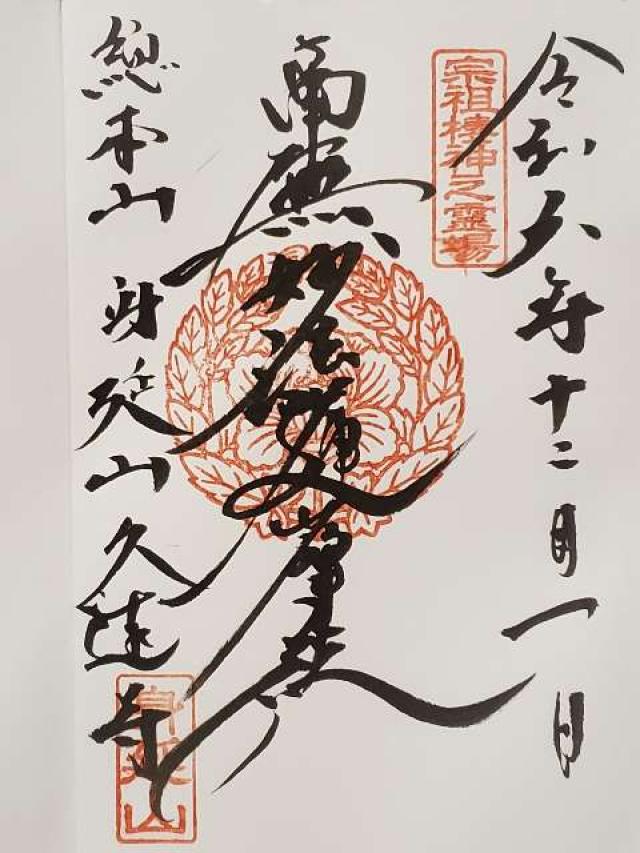 令和六年十二月一日
宗祖棲神之霊場
南無妙法蓮華経
総本山 身延山 久遠寺
身延山